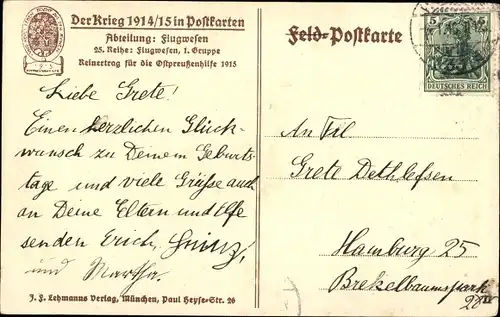 Der Krieg 1914/15 in Postkarten
Abteilung: Flugwesen
25. Reihe: Flugwesen, 1. Gruppe
Reinertrag für die Ostpreußenhilfe 1915
Liebe Grete!
Einen herzlichen Glück-
wunsch zu Deinem Geburts-
tage und viele Grüsse auch
an Deine Eltern und Ilse
senden Erich, Heinz,
und Martha.
J. F. Lehmanns Verlag, München, Paul Heyse-Str. 26
Feld-Postkarte
5 5
DEUTSCHES REICH
An Frl.
Grete Dethlefsen
Hamburg 25
Brekelbaumspark